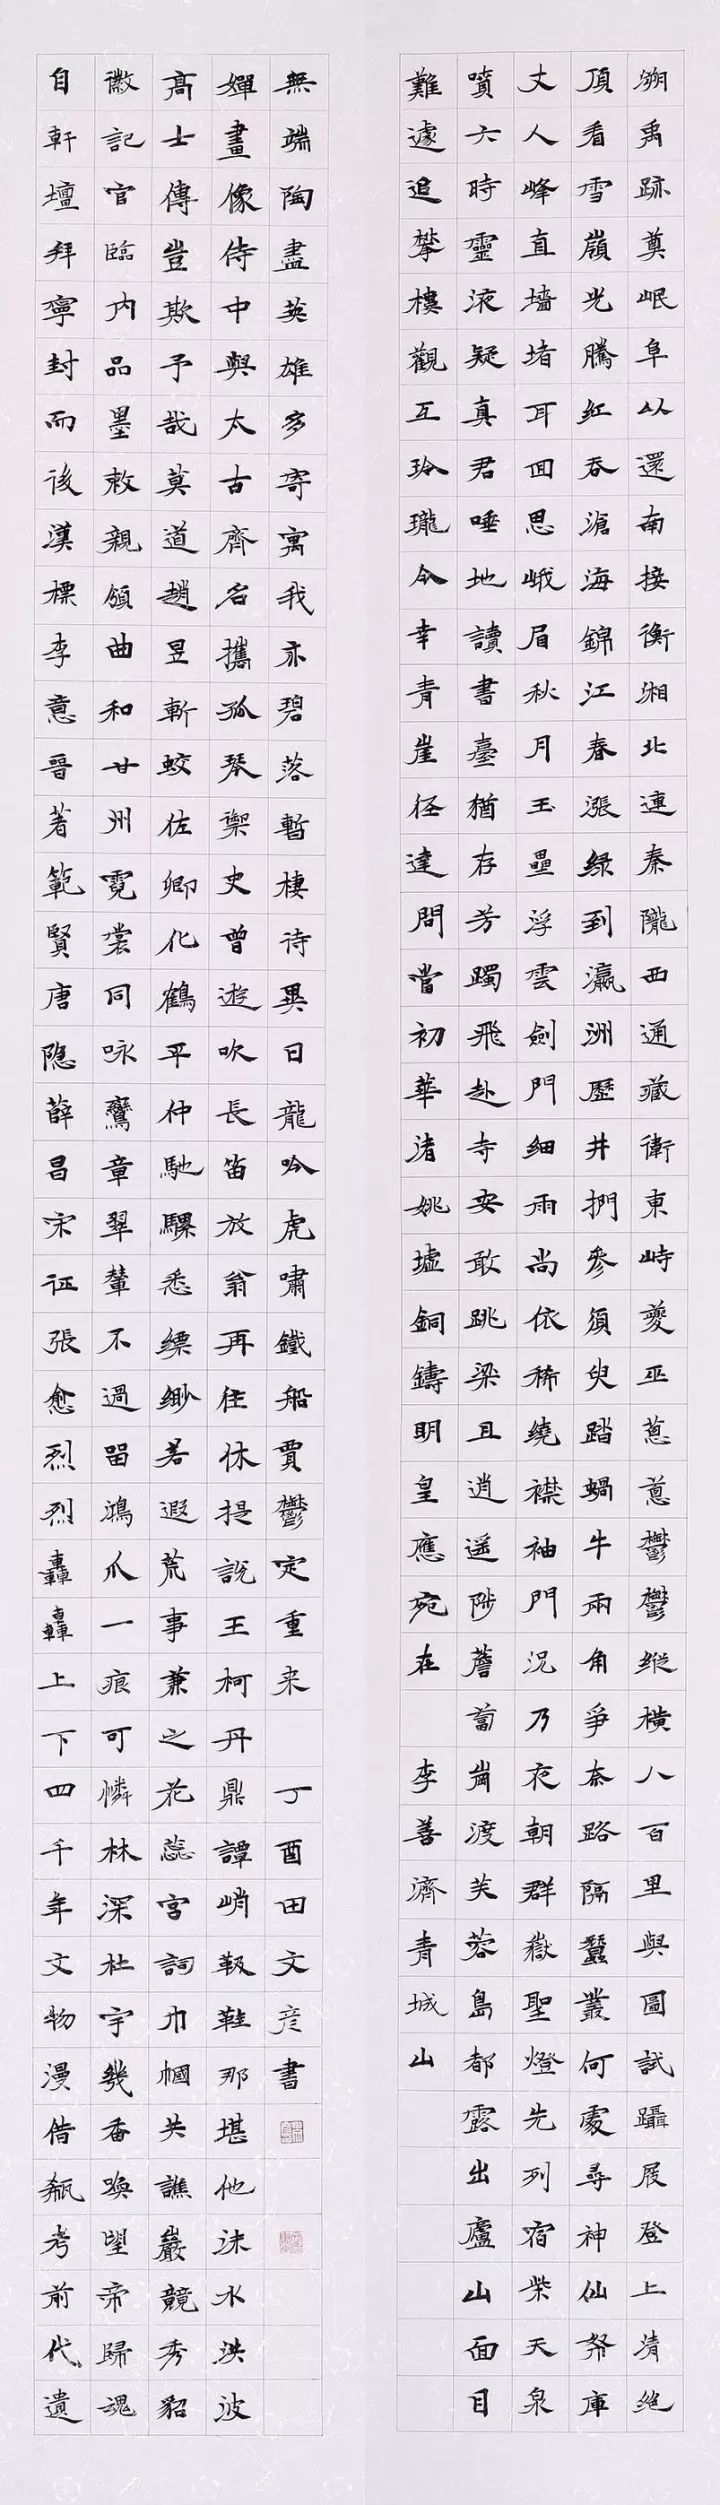 溯禹跡奠岷阜以還南接衡湘北連秦隴西通藏衛東峙夔巫蔥蔥鬱鬱縱橫八百里輿圖試躡屐登上清絕
頂看雪嶺光騰紅吞滄海錦江春漲綠到瀛洲歷井捫參須臾踏蝸牛兩角爭奈路隔蠶叢何處尋神仙帑庫
丈人峰直墻堵耳回思峨眉秋月玉壘浮雲劍門細雨尚依稀繞襟袖門況乃夜朝群嶽聖燈先列宿柴天泉
噴六時靈液疑真君唾地讀書臺猶存芳躅飛赴寺安敢跳梁且逍遙陟薝蔔崗渡芙蓉島都露出廬山面目
難遽追攀樓觀互玲瓏今幸青崖徑達問當初華渚姚墟銅鑄明皇應宛在 李善濟青城山
自軒壇拜寧封而後漢標李意晉著範賢唐隱薛昌宋征張愈烈烈轟轟上下四千年文物漫借瓻考前代遺
徽記官臨內品墨敕親頒曲和甘州霓裳同咏鸞章翠輦不過留鴻爪一痕可憐林深杜宇幾番喚望帝歸魂
高士傳豈欺予哉莫道趙昱斬蛟佐卿化鶴平仲馳騾悉縹緲若遐荒事兼之花蕊宮詞巾幗共譙巖競秀貂
嬋畫像侍中與太古齊名攜孤琴禦史曾遊吹長笛放翁再往休提說王柯丹鼎譚峭靸鞋那堪他沫水洪波
無端陶盡英雄多寄寓我亦碧落暫棲待異日龍吟虎嘯鐵船賈鬱定重來 丁酉田文彥書